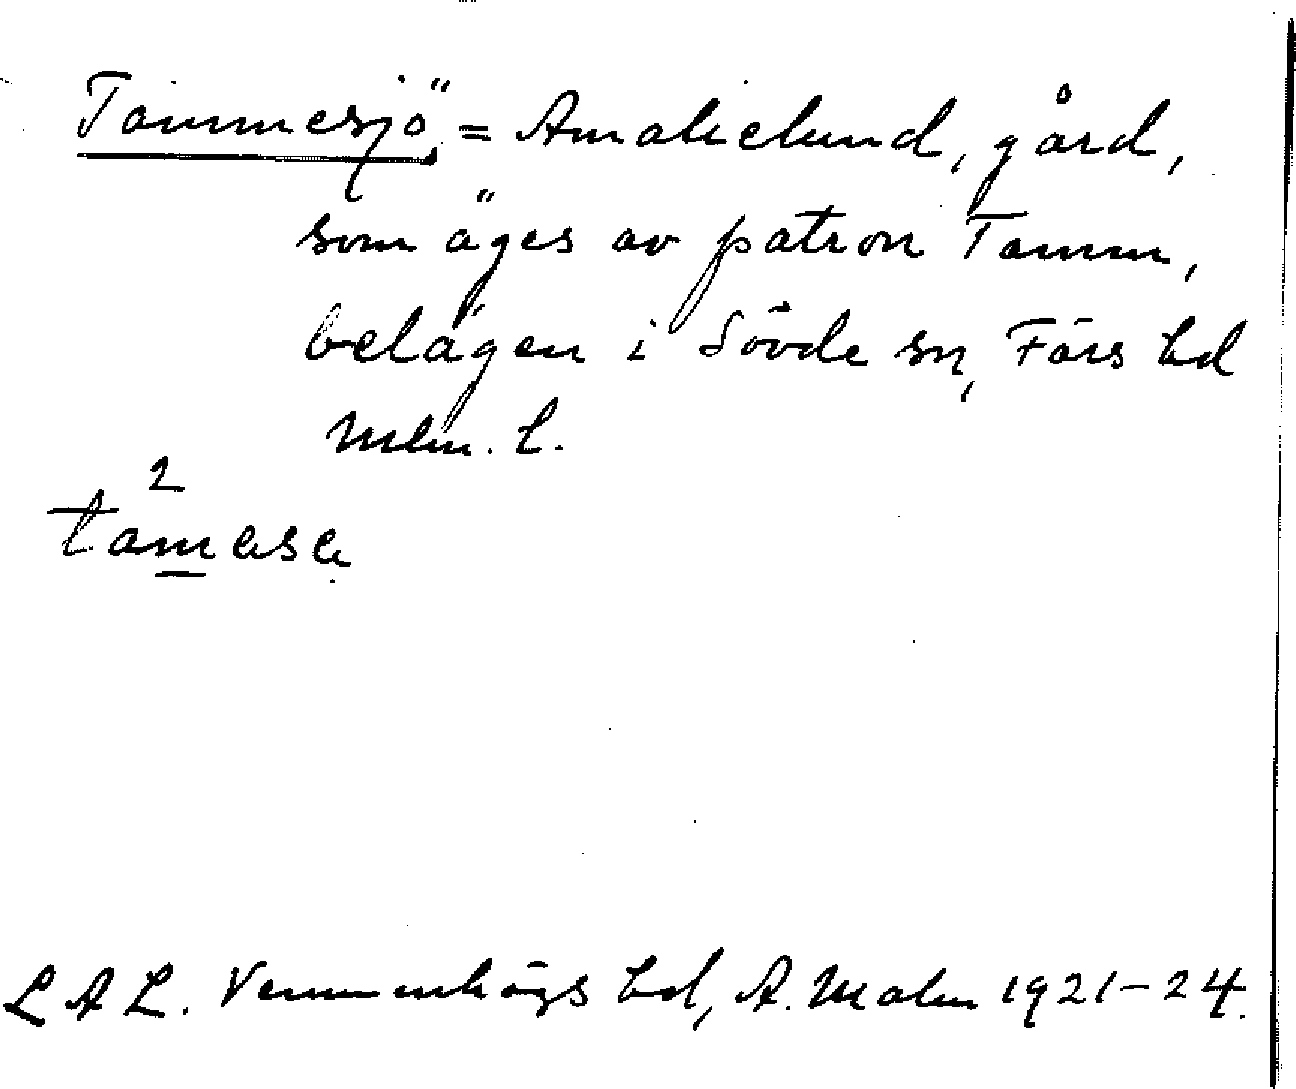 Tammesjö, = Amalielund, gård,
som äges av patron Tamm,
belägen i Sövde sn, Färs hd
Mlm. L.
2
tamasa
L A L. Vemmenhögs hd, A. Malm 1921-24.